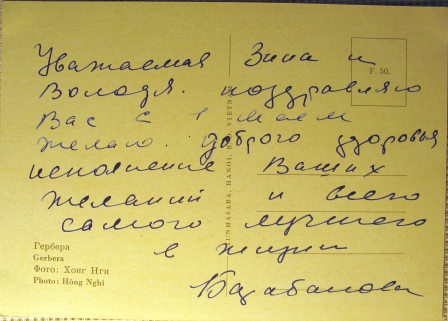 Уважаемая Зина и
Володя. поздравляю
Вас с 1 маем
желаю доброго здоровья
исполнение Ваших
желаний и всего
самого лучшего
в жизни
F. 50.
XUNHASABA, HANOI, R.D. VIETN
Гербера
Gerbera
Фото: Хонг Нги
Photo: Hông Nghi